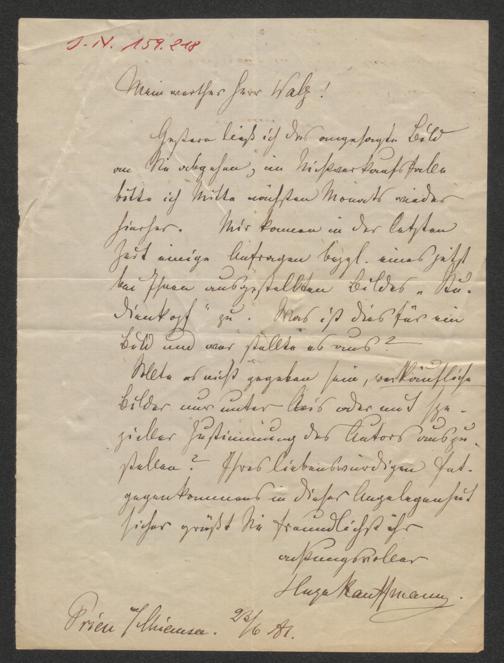 J. N. 159.818
Mein werther Herr Walz!
Gestern ließ ich das angesagte Bild
an Sie abgehen, im Nichtverkaufsfalle
bitte ich Mitte nächsten Monats wieder
hierher. Mir kamen in der letzten
Zeit einige Anfragen bezgl. eines jetzt
bei Ihnen ausgestellten Bildes „Stu-
dienkopf" zu. Was ist dies für ein
Bild und wer stellte es aus?
Sollte es nicht gegeben sein, verkäufliche
Bilder nur unter Avis oder mit spe-
zieller Zustimmung des Autors auszu-
stellen? Ihres liebenswürdigen Ent-
gegenkommens in dieser Angelegenheit
sicher grüßt Sie freundlichst Ihr
achtungsvoller
Hugo Kauffmann.
Prien a/Chiemsee. /6 81.